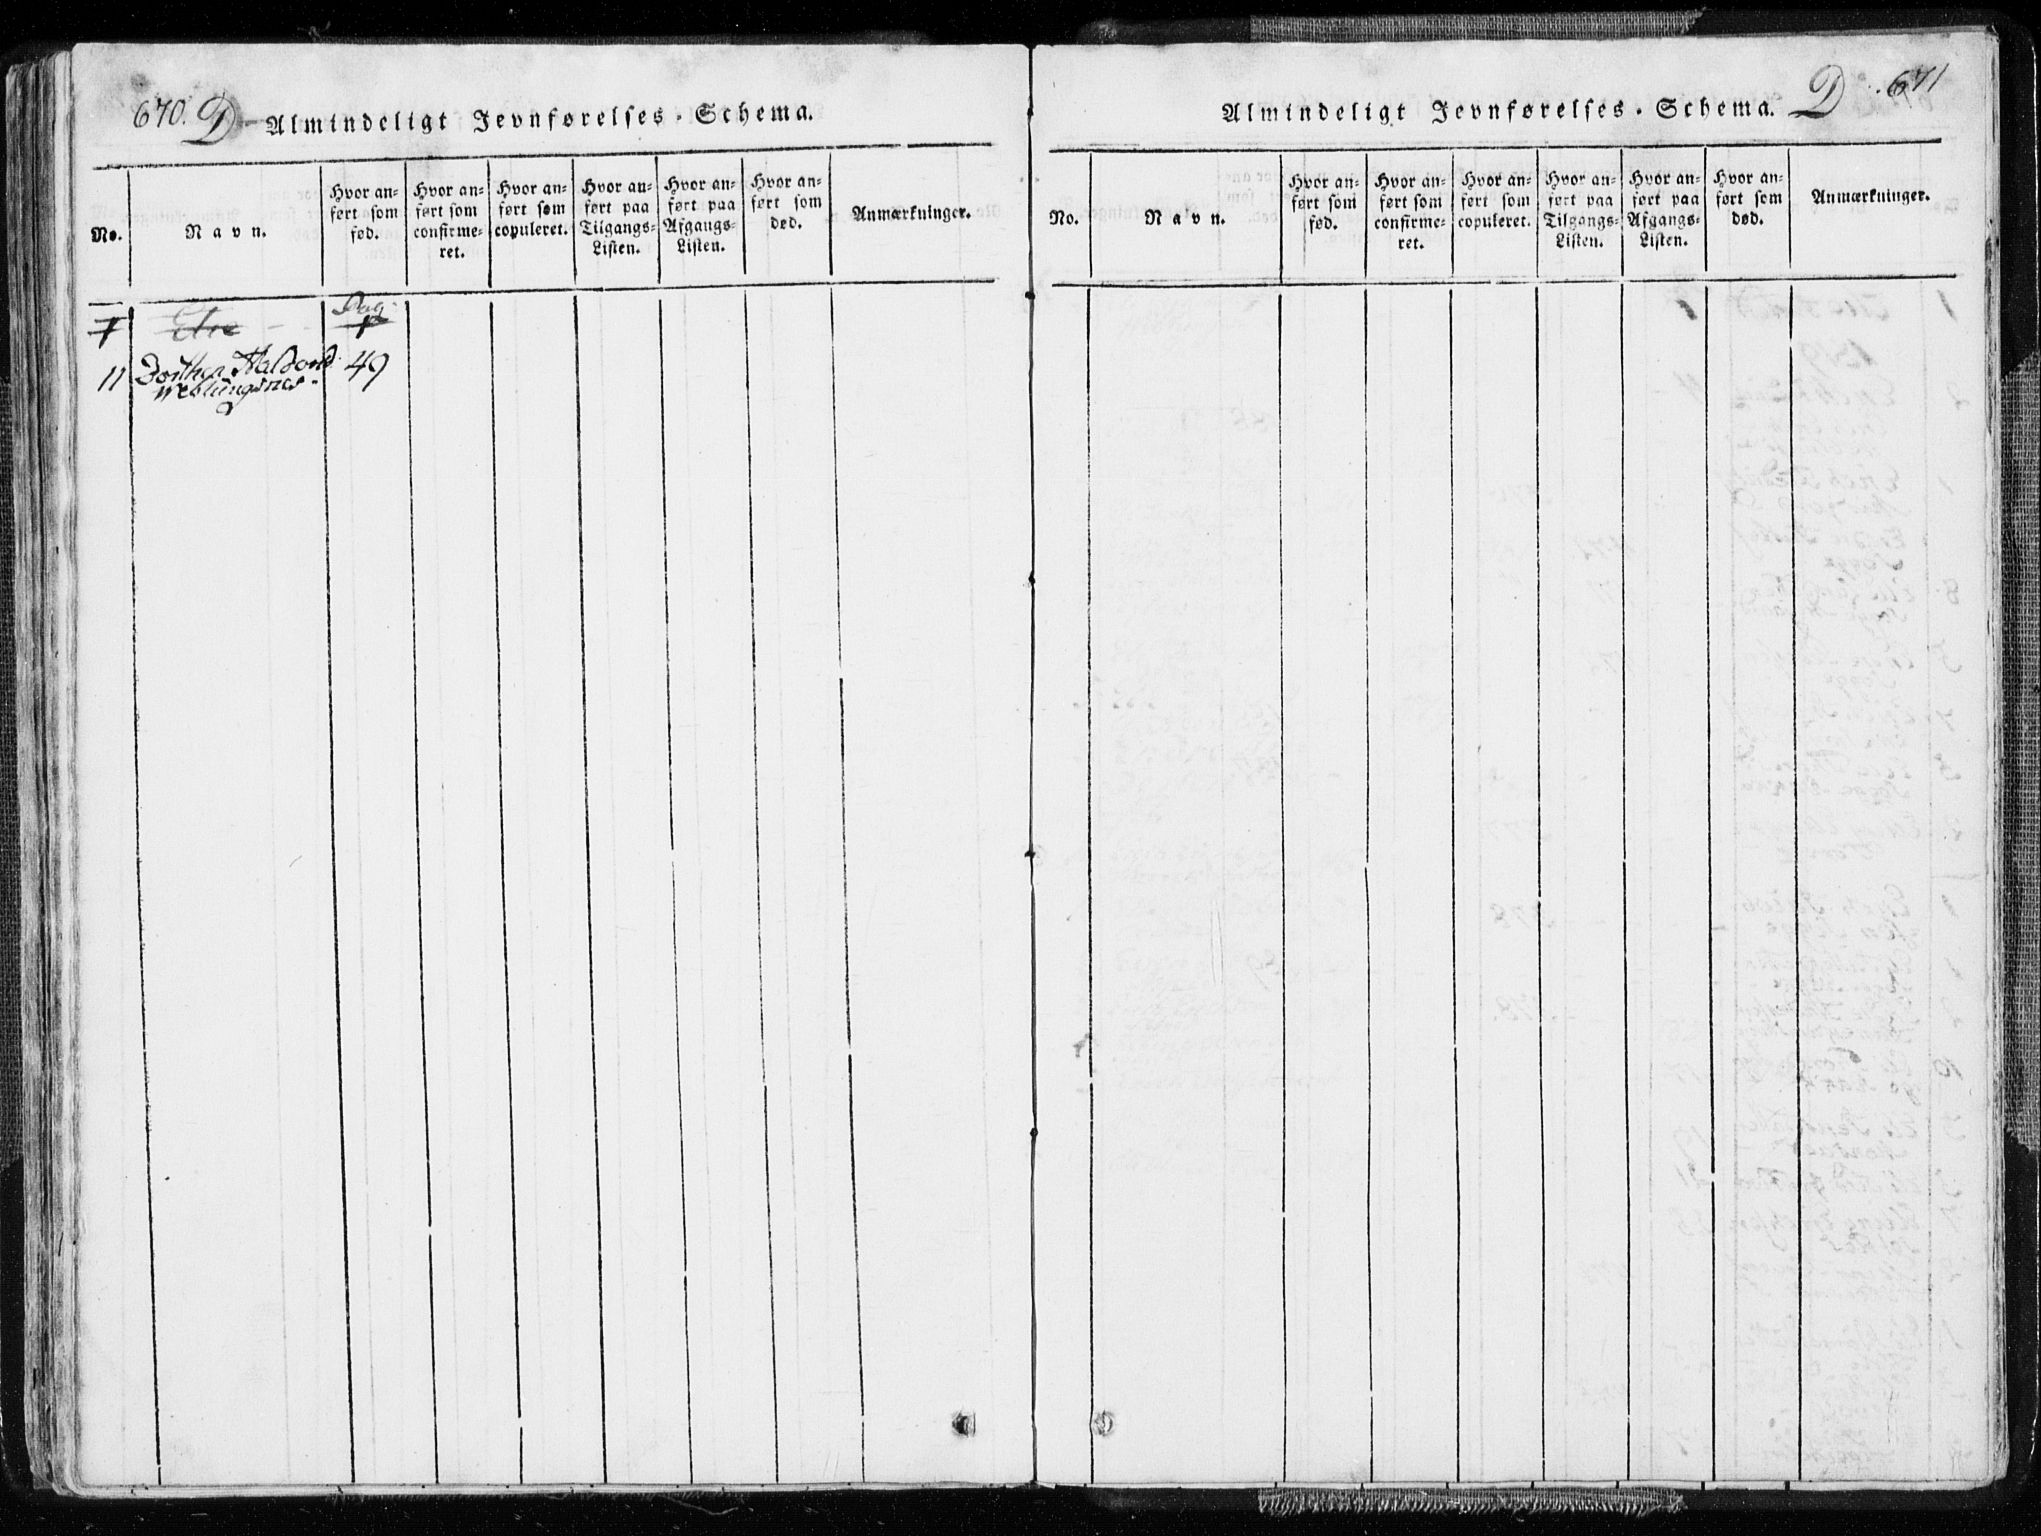 670. D Almindeligt Jevnførelses-Schema.
No.
Navn.
Hvor anført som fød.
Hvor anført som confirmeret.
Hvor anført som copuleret.
Hvor anført paa Tilgangs-Listen.
Hvor anført paa Afgangs-Listen.
Hvor anført som død.
Anmærkninger.
Pag
1 Else 1
11 49
Veblungsnes
Almindeligt Jevnførelses-Schema. D 671
No.
Navn.
Hvor anført som fød.
Hvor anført som confirmeret.
Hvor anført som copuleret.
Hvor anført paa Tilgangs-Listen.
Hvor anført paa Afgangs-Listen.
Hvor anført som død.
Anmærkninger.